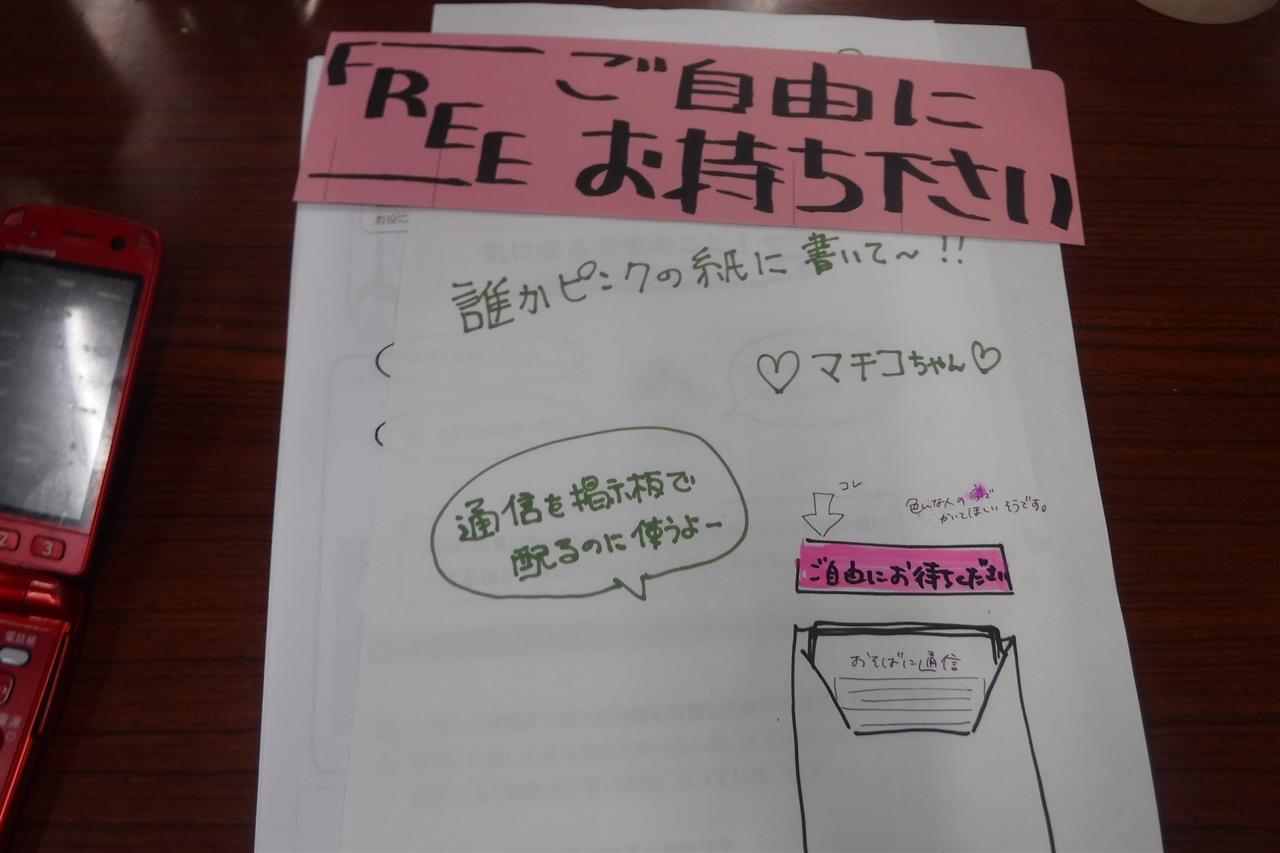 FREE
ご自由に
お持ち下さい
お役に
誰かピンクの紙に書いて〜!!
♡マチコちゃん♡
通信を掲示板で
配るのに使うよー
コレ
色んな人の字で
かいてほしいそうです。
ご自由にお持ちください
おそばに通信
docomo
2
3
電話帳
電源